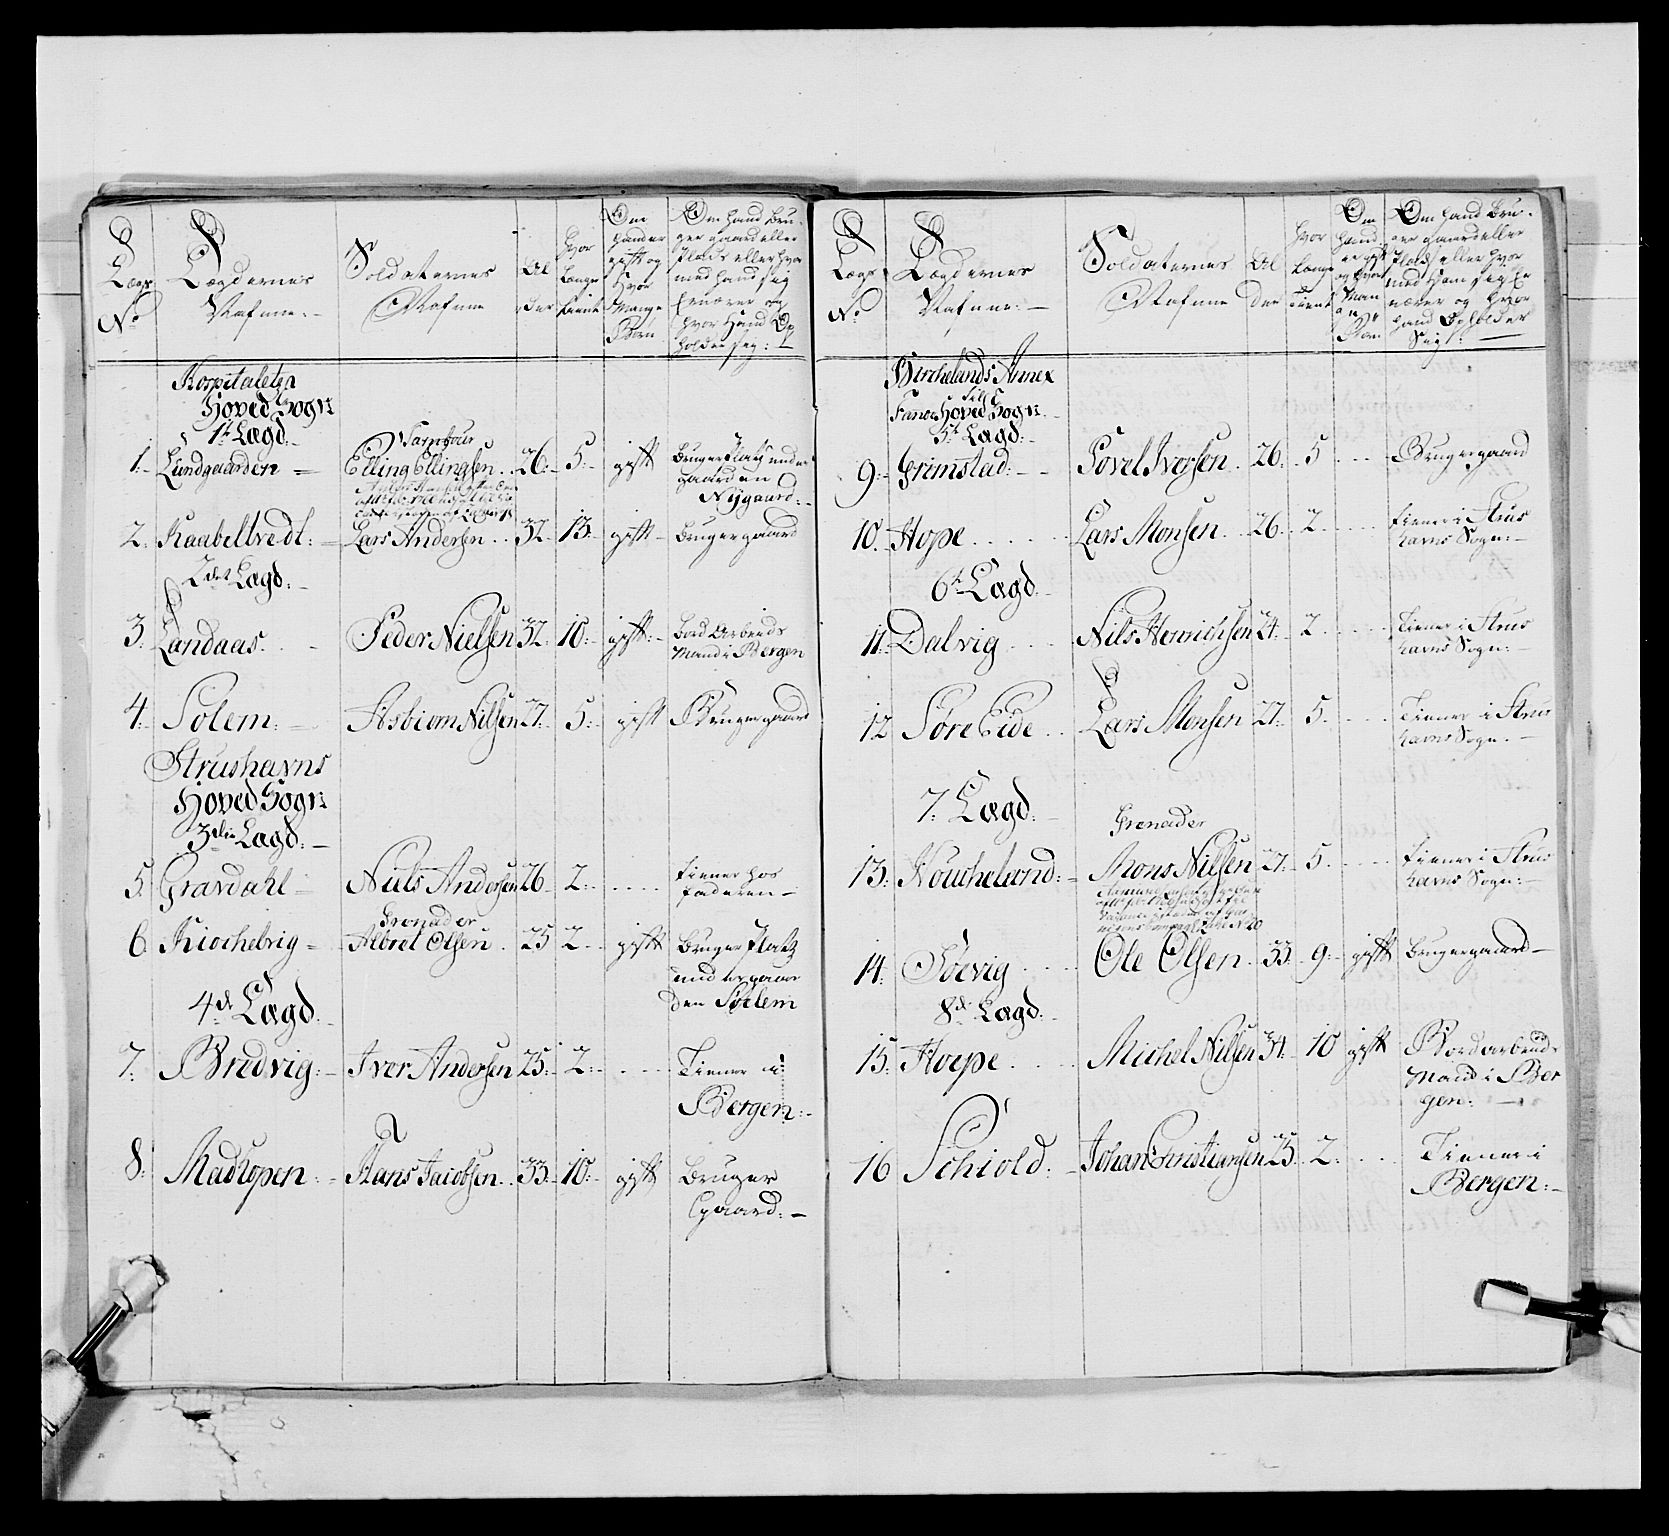 Lægs
No
Lægdernes
Nafune: -
Soldaternes
Nafune
Al
der
Hvor
Længe
tient
Om
hand er
gift og
Hvor
Mange
Børn
Om hand Bru-
ger gaard eller
Plads eller hvor
med hand sig
Ernærer og
hvor Hand Op
holder sig: -
Hospitaletz
Hoved Sogn
1te Lægd: -
Tambour
1: Lundgaarden - Elling Ellingsen . . 26. 5: gift Bruger Platz under
gaarden
Nygaard: -
2: Kaabeltvedt: - Lars Andersen . . 32 13: gift - Bruger gaard
2det Lægd: -
3: Landaas . . - Peder Nielsen 32. 10: gift: - Bord Arbeids
Mand i Bergen
4. Solem: - Asbiørn Nilsen 27. 5: gift Bruger gaard
Strushavns
Hoved Sogn
3die Lægd: -
5. Gravdahl - Niels Andersen 26. 2: . . . . tiener hos
faderen -
Grenader
6. Kiochelvig = Albret Olsen . 25 2 gift Bruger Platz
under gaar
den Sørlem
4de Lægd
7. Bredvig: - Iver Andersen 25: 2: . . . . Tiener i
Bergen: -
8: Madkopen: - Hans Jacobsen . . 33. 10: gift Bruger
Gaard: -
Lægs
No
Lægdernes
Nafune: -
Soldaternes
Nafune
Al
der
Hvor
længe
tient
Om
hand
er gift
og hvor
Man
ge
Børn
Om hand Bru-
ger gaard eller
Plads eller hvor
med Ham sig Er
nærer og hvor
hand Opholder
Sig: -
Birchelands Annex
til
Fanøe Hoved Sogn
5te Lægd: -
9: Grimstad: - - Povel Iversen . 26. 5 . . . . Bruger gaard
10. Hope . . . . . . Lars Monsen . . 26. 2 . . . . tiener i Strus
havns Sogn: -
6te Lægd.
11: Dalvig . . . . Nils Henrichsen 24. 2 . . . . Tiener i Strus
havns Sogn: -
12 Søre Eide . . Lars Monsen 27. 5. . . . . Tiener i Strus
havns Sogn. -
7: Lægd: -
Grenader
13: Houchelund: - Mons Nilsen 27. 5. . . . . tiener i Strus
havns Sogn: -
14: Søevig . . . . Ole Olsen . 33. 9: gift Bruger gaard -
8de Lægd: -
15: Hoepe . . . . . Michel Nilsen 34. 10 gift Bord arbeids
Mand i Ber
gen: -
16 Schiold: - Johan Christiansen 25. 2. . . . Tiener i
Bergen: -